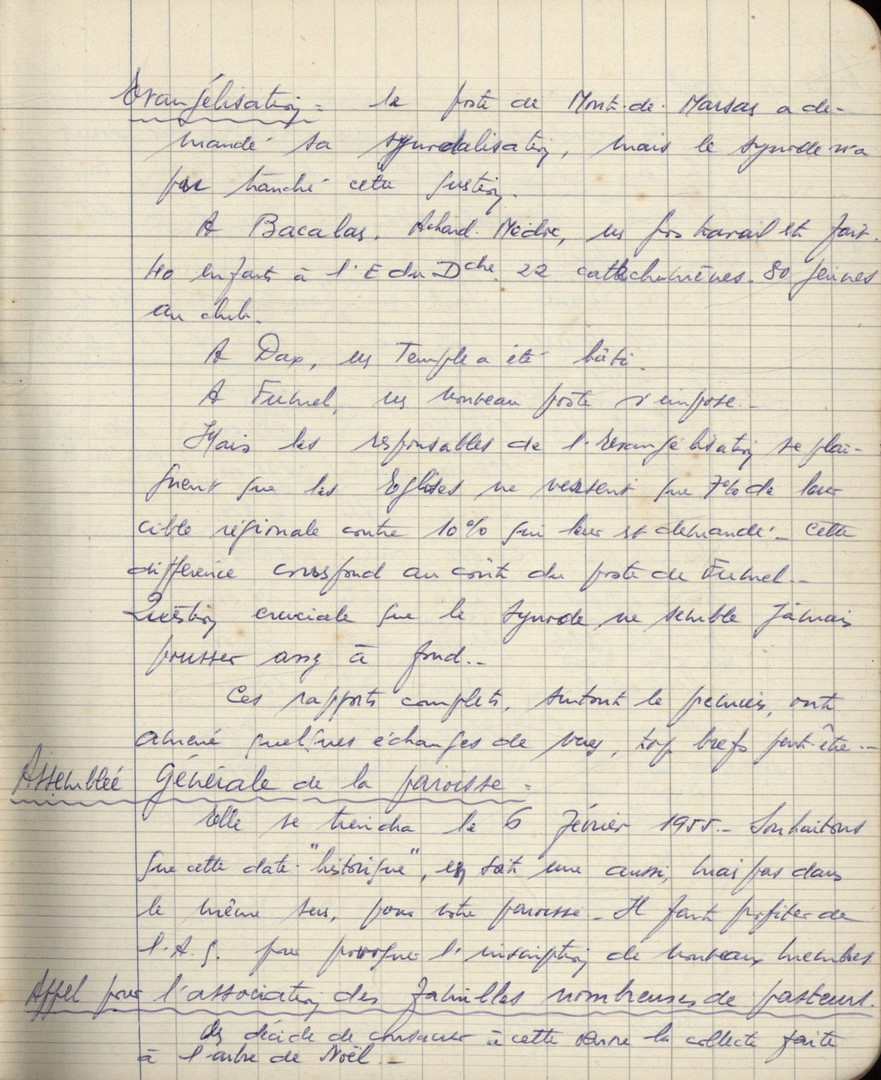 Evangélisation = le poste de Mont-de-Marsas a de-
mandé sa synodalisation, mais le synode n'a
pas tranché cette question.
A Bacalas, Achard. un gros travail est fait.
40 enfants à l'E du Dche, 22 catéchumènes. 80 jeunes
au club.
A Dax, un Temple a été bâti.
A Fumel, un nouveau poste s'impose.-
Mais les responsables de l'evangélisation se plai-
gnent que les Eglises ne versent que 7% de leur
cible régionale contre 10% qui leur est demandé.- Cette
différence correspond au coût du poste de Fumel.-
Question cruciale que le synode ne semble jamais
pousser assez à fond.-
Ces rapports complets, surtout le premier, ont
amené quelques échanges de vues, trop brefs peut-être.-
Assemblée Générale de la paroisse =
Elle se tiendra le 6 Février 1955.- Souhaitons
que cette date "historique", en soit une aussi, mais pas dans
le même sens, pour notre paroisse.- Il faut profiter de
l'A.G. pour provoquer l'inscription de nouveaux membres
Appel pour l'association des familles nombreuses de pasteurs.
On décide de consacrer à cette œuvre la collecte faite
à l'arbre de Noël.-